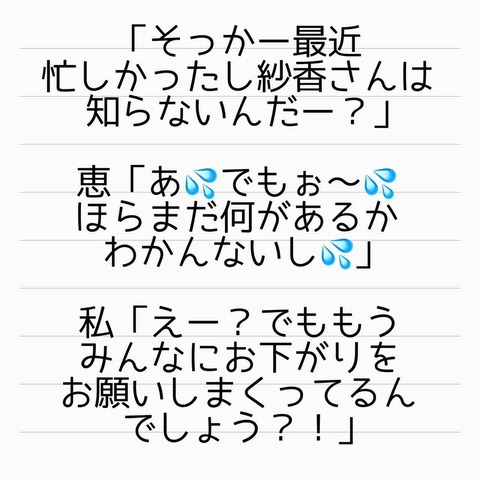 「そっかー最近
忙しかったし紗香さんは
知らないんだー？」
恵「あ💦でもぉ〜💦
ほらまだ何があるか
わかんないし💦」
私「えー？でももう
みんなにお下がりを
お願いしまくってるん
でしょう？！」